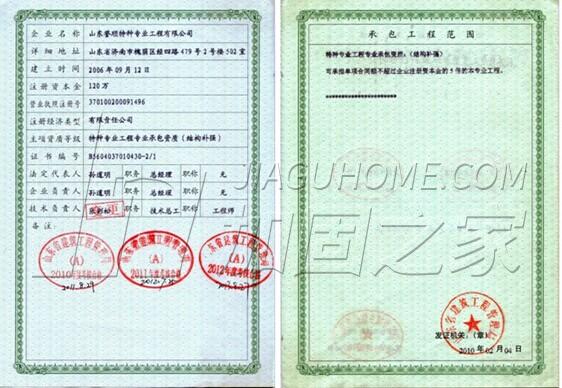 企业名称 山东誉硕特种专业工程有限公司
详细地址 山东省济南市槐荫区经四路479号2号楼502室
建立时间 2006年09月12日
注册资本金 120万
营业执照注册号 370100200091496
注册经济类型 有限责任公司
主项资质等级 特种专业工程专业承包资质（结构补强）
证书编号 B5604037010430-2/1
法定代表人 孙道明 职务 总经理 职称 无
企业负责人 孙道明 职务 总经理 职称 无
技术负责人 职务 技术总工 职称 工程师
备注：
（A）
2010年度考核合格
2011.8.29
（A）
2011年度考核合格
（A）
2012年度考核合格
承包工程范围
特种专业工程专业承包资质：（结构补强）
可承担单项合同额不超过企业注册资本金的5倍的本专业工程。
发证机关：（章）
2010年02月04日
JIAGUHOME.COM
加固之家